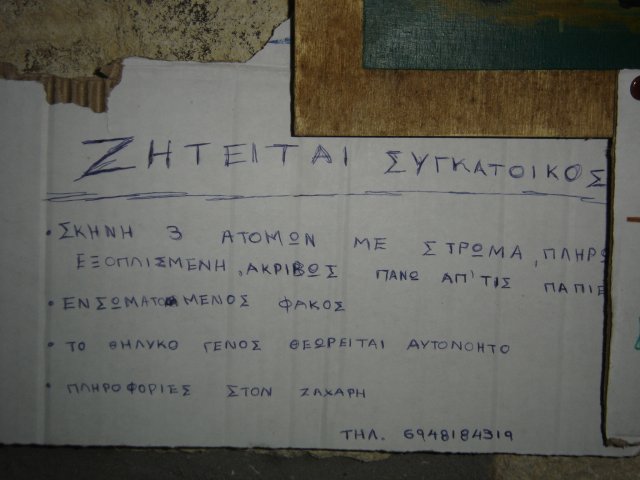 ΖΗΤΕΙΤΑΙ ΣΥΓΚΑΤΟΙΚΟΣ
• ΣΚΗΝΗ 3 ΑΤΟΜΩΝ ΜΕ ΣΤΡΩΜΑ, ΠΛΗΡΩ
ΕΞΟΠΛΙΣΜΕΝΗ, ΑΚΡΙΒΩΣ ΠΑΝΩ ΑΠ'ΤΙΣ ΠΑΠΙΕ
• ΕΝΣΩΜΑΤΟΜΕΝΟΣ ΦΑΚΟΣ
• ΤΟ ΘΗΛΥΚΟ ΓΕΝΟΣ ΘΕΩΡΕΙΤΑΙ ΑΥΤΟΝΟΗΤΟ
• ΠΛΗΡΟΦΟΡΙΕΣ ΣΤΟΝ ΖΑΧΑΡΗ
ΤΗΛ. 6948184319